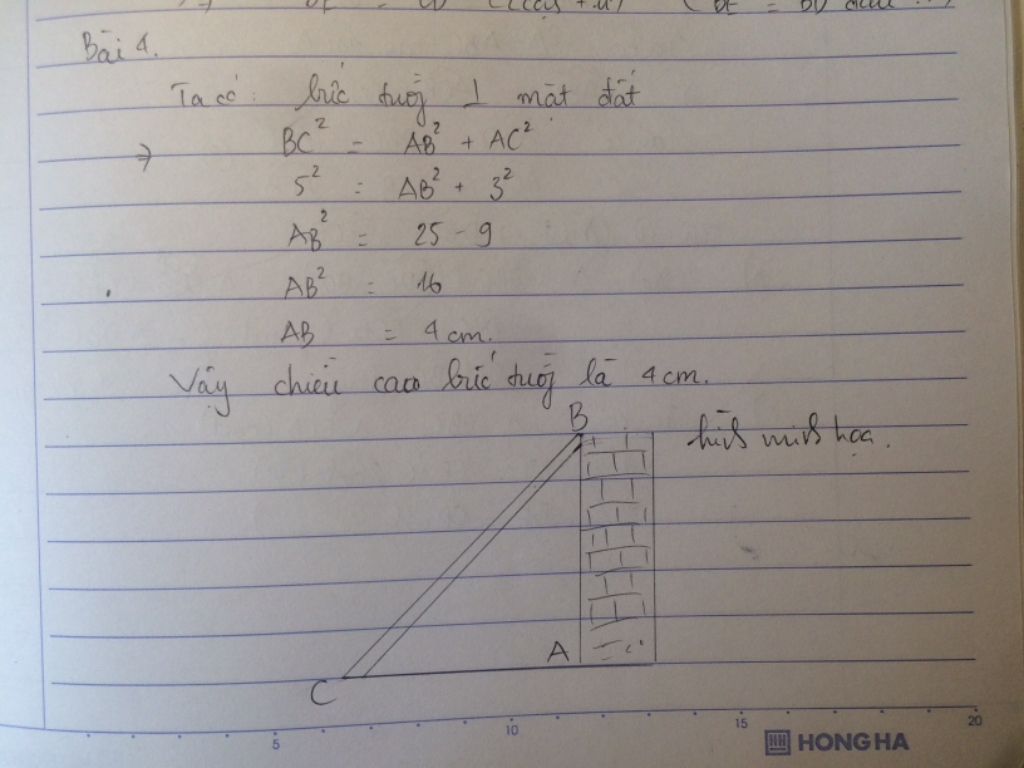 Bài 4.
Ta có: bức tường ⊥ mặt đất
⇒ BC² = AB² + AC²
5² = AB² + 3²
AB² = 25 - 9
AB² = 16
AB = 4 cm.
Vậy chiều cao bức tường là 4 cm.
B
hình minh họa.
A
C
5 10 15 20
HH HONG HA